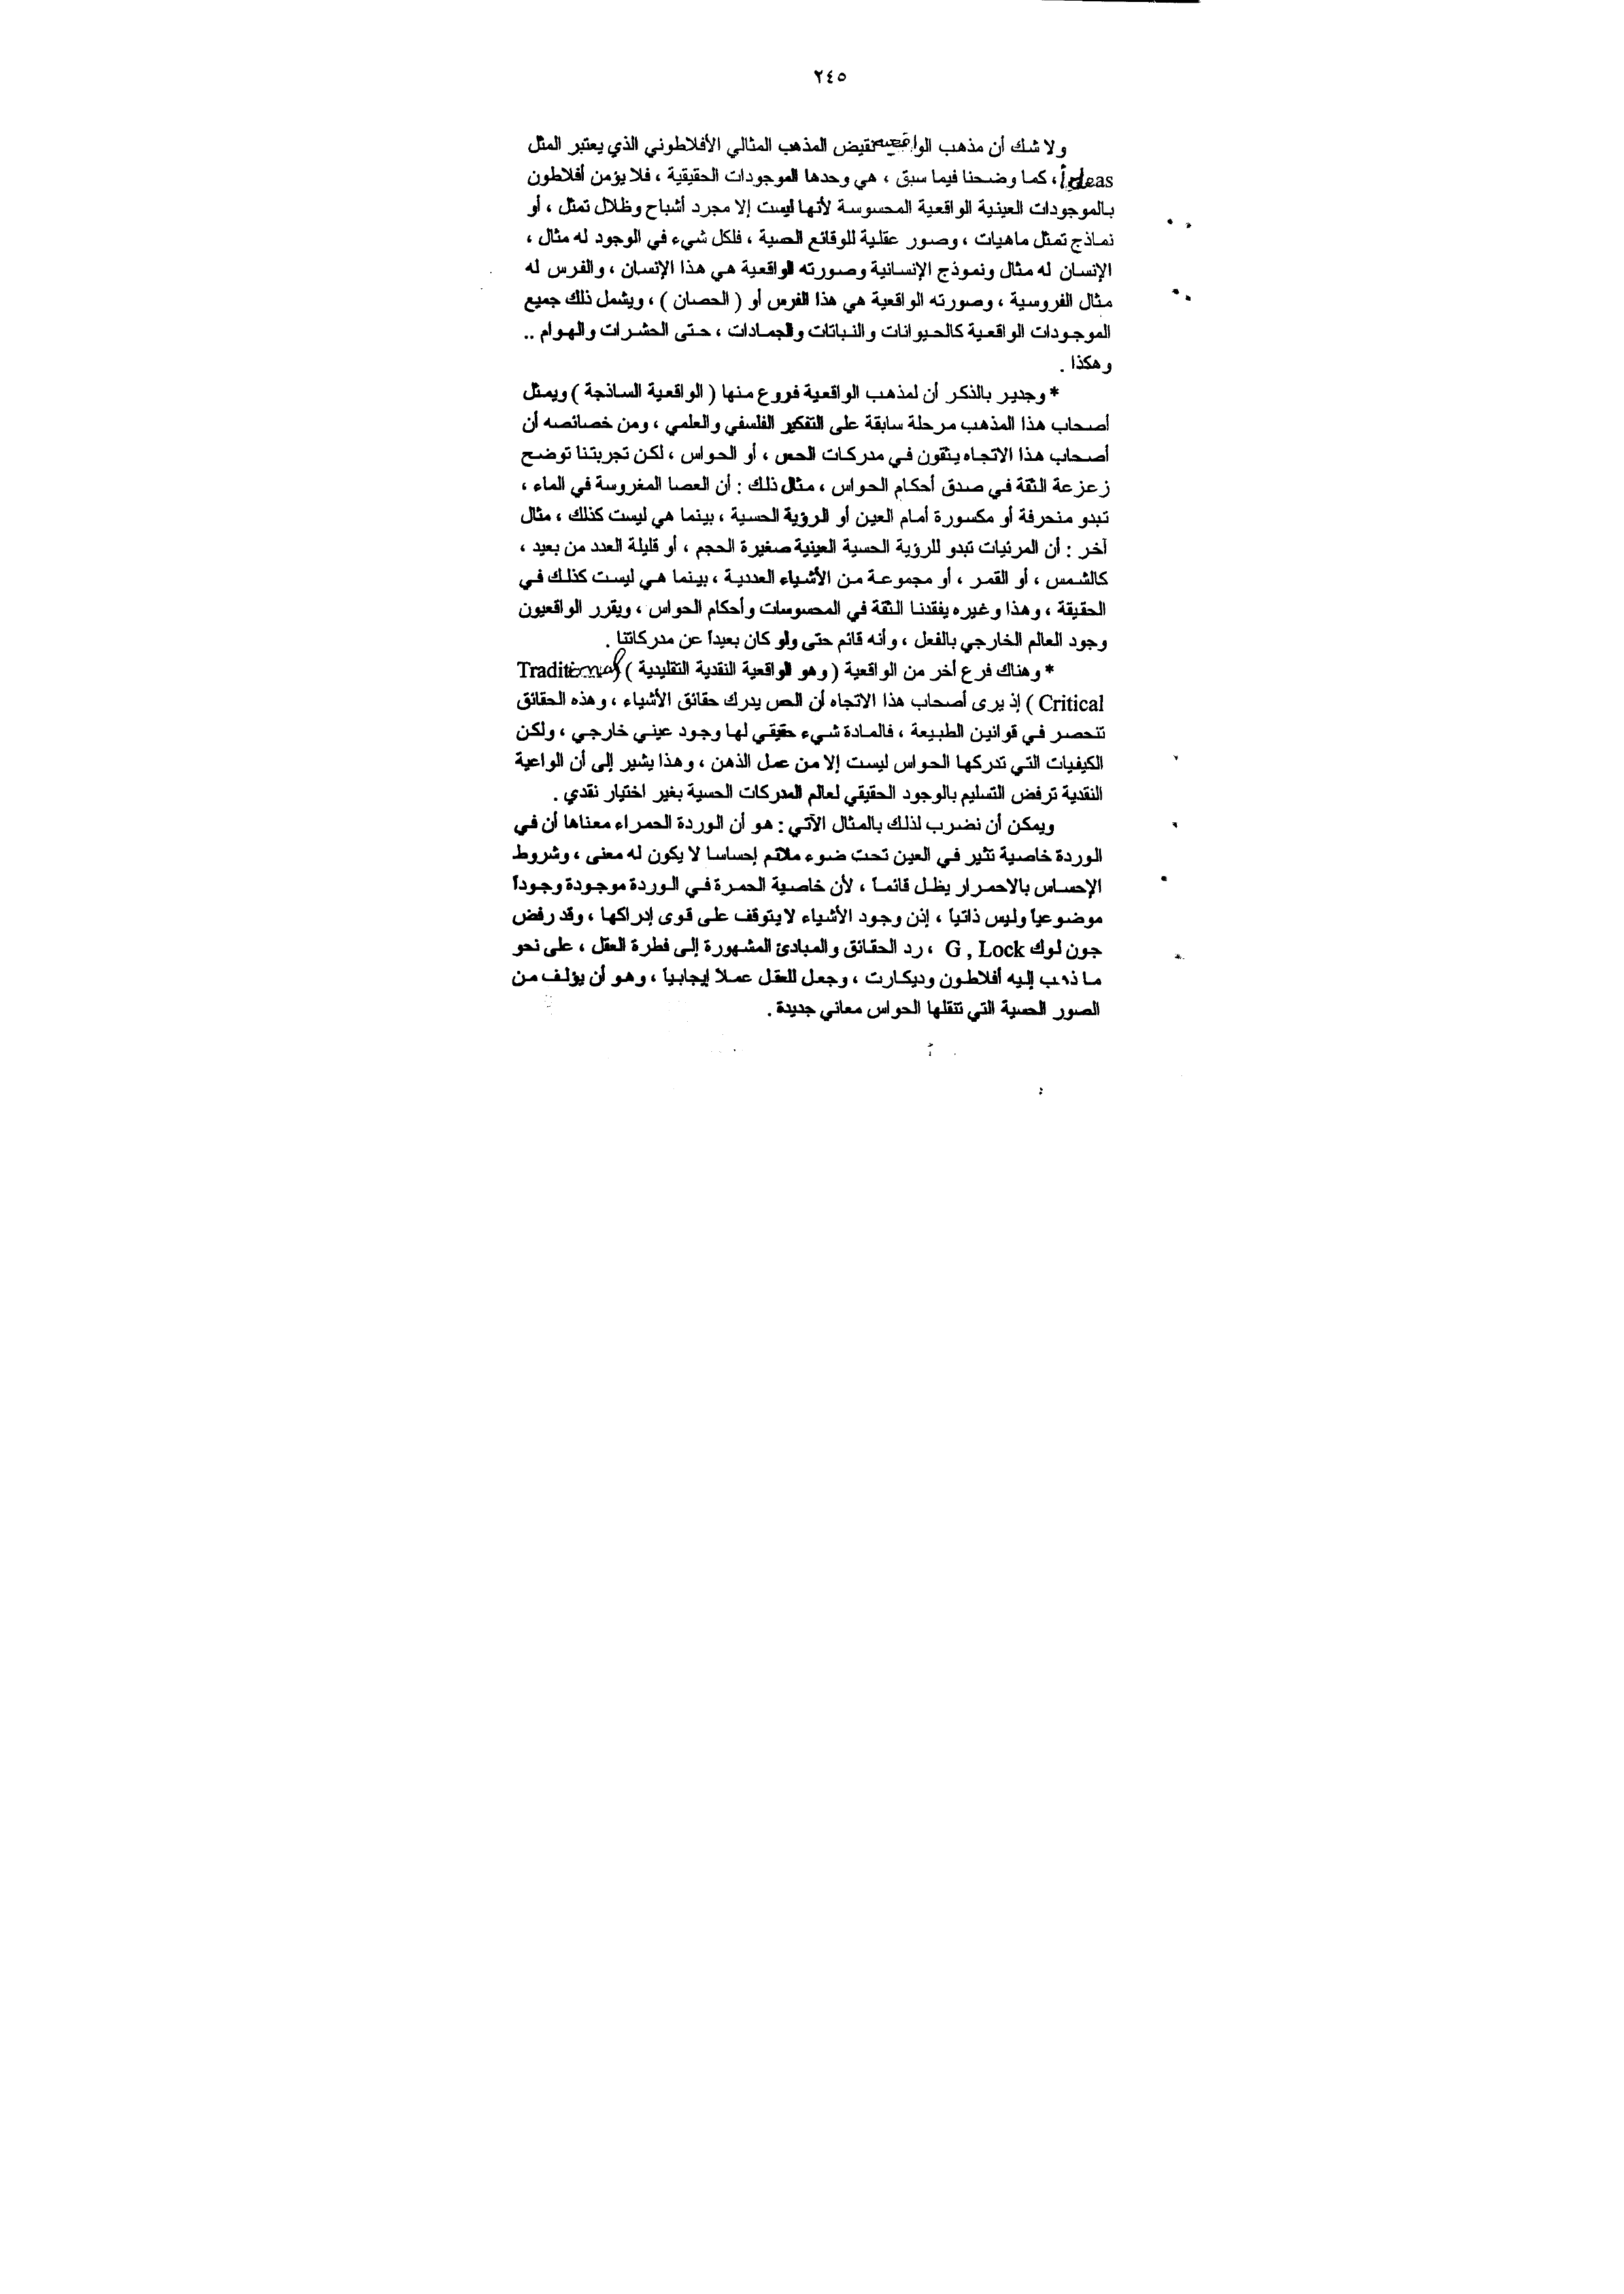 ٢٤٥
ولا شك أن مذهب الواقعية نقيض المذهب المثالي الأفلاطوني الذي يعتبر المثل
Ideas ، كما وضحنا فيما سبق ، هي وحدها الموجودات الحقيقية ، فلا يؤمن أفلاطون
بالموجودات العينية الواقعية المحسوسة لأنها ليست إلا مجرد أشباح وظلال تمثل ، أو
نماذج تمثل ماهيات ، وصور عقلية للوقائع الحسية ، فلكل شيء في الوجود له مثال ،
الإنسان له مثال ونموذج الإنسانية وصورته الواقعية هي هذا الإنسان ، والفرس له
مثال الفروسية ، وصورته الواقعية هي هذا الفرس أو ( الحصان ) ، ويشمل ذلك جميع
الموجودات الواقعية كالحيوانات والنباتات والجمادات ، حتى الحشرات والهوام ..
وهكذا .
* وجدير بالذكر أن لمذهب الواقعية فروع منها ( الواقعية الساذجة ) ويمثل
أصحاب هذا المذهب مرحلة سابقة على التفكير الفلسفي والعلمي ، ومن خصائصه أن
أصحاب هذا الاتجاه يثقون في مدركات الحس ، أو الحواس ، لكن تجربتنا توضح
زعزعة الثقة في صدق أحكام الحواس ، مثال ذلك : أن العصا المغروسة في الماء ،
تبدو منحرفة أو مكسورة أمام العين أو الرؤية الحسية ، بينما هي ليست كذلك ، مثال
آخر : أن المرئيات تبدو للرؤية الحسية العينية صغيرة الحجم ، أو قليلة العدد من بعيد ،
كالشمس ، أو القمر ، أو مجموعة من الأشياء العددية ، بينما هي ليست كذلك في
الحقيقة ، وهذا وغيره يفقدنا الثقة في المحسوسات وأحكام الحواس ، ويقرر الواقعيون
وجود العالم الخارجي بالفعل ، وأنه قائم حتى ولو كان بعيداً عن مدركاتنا .
* وهناك فرع أخر من الواقعية ( وهو الواقعية النقدية التقليدية ) Traditional
Critical ) إذ يرى أصحاب هذا الاتجاه أن الحس يدرك حقائق الأشياء ، وهذه الحقائق
تنحصر في قوانين الطبيعة ، فالمادة شيء حقيقي لها وجود عيني خارجي ، ولكن
الكيفيات التي تدركها الحواس ليست إلا من عمل الذهن ، وهذا يشير إلى أن الواعية
النقدية ترفض التسليم بالوجود الحقيقي لعالم المدركات الحسية بغير اختيار نقدي .
ويمكن أن نضرب لذلك بالمثال الآتي : هو أن الوردة الحمراء معناها أن في
الوردة خاصية تثير في العين تحت ضوء ملائم إحساسا لا يكون له معنى ، وشروط
الإحساس بالاحمرار يظل قائماً ، لأن خاصية الحمرة في الوردة موجودة وجوداً
موضوعياً وليس ذاتياً ، إذن وجود الأشياء لا يتوقف على قوى إدراكها ، وقد رفض
جون لوك G , Lock ، رد الحقائق والمبادئ المشهورة إلى فطرة العقل ، على نحو
ما ذهب إليه أفلاطون وديكارت ، وجعل للعقل عملاً إيجابياً ، وهو أن يؤلف من
الصور الحسية التي تنقلها الحواس معاني جديدة .